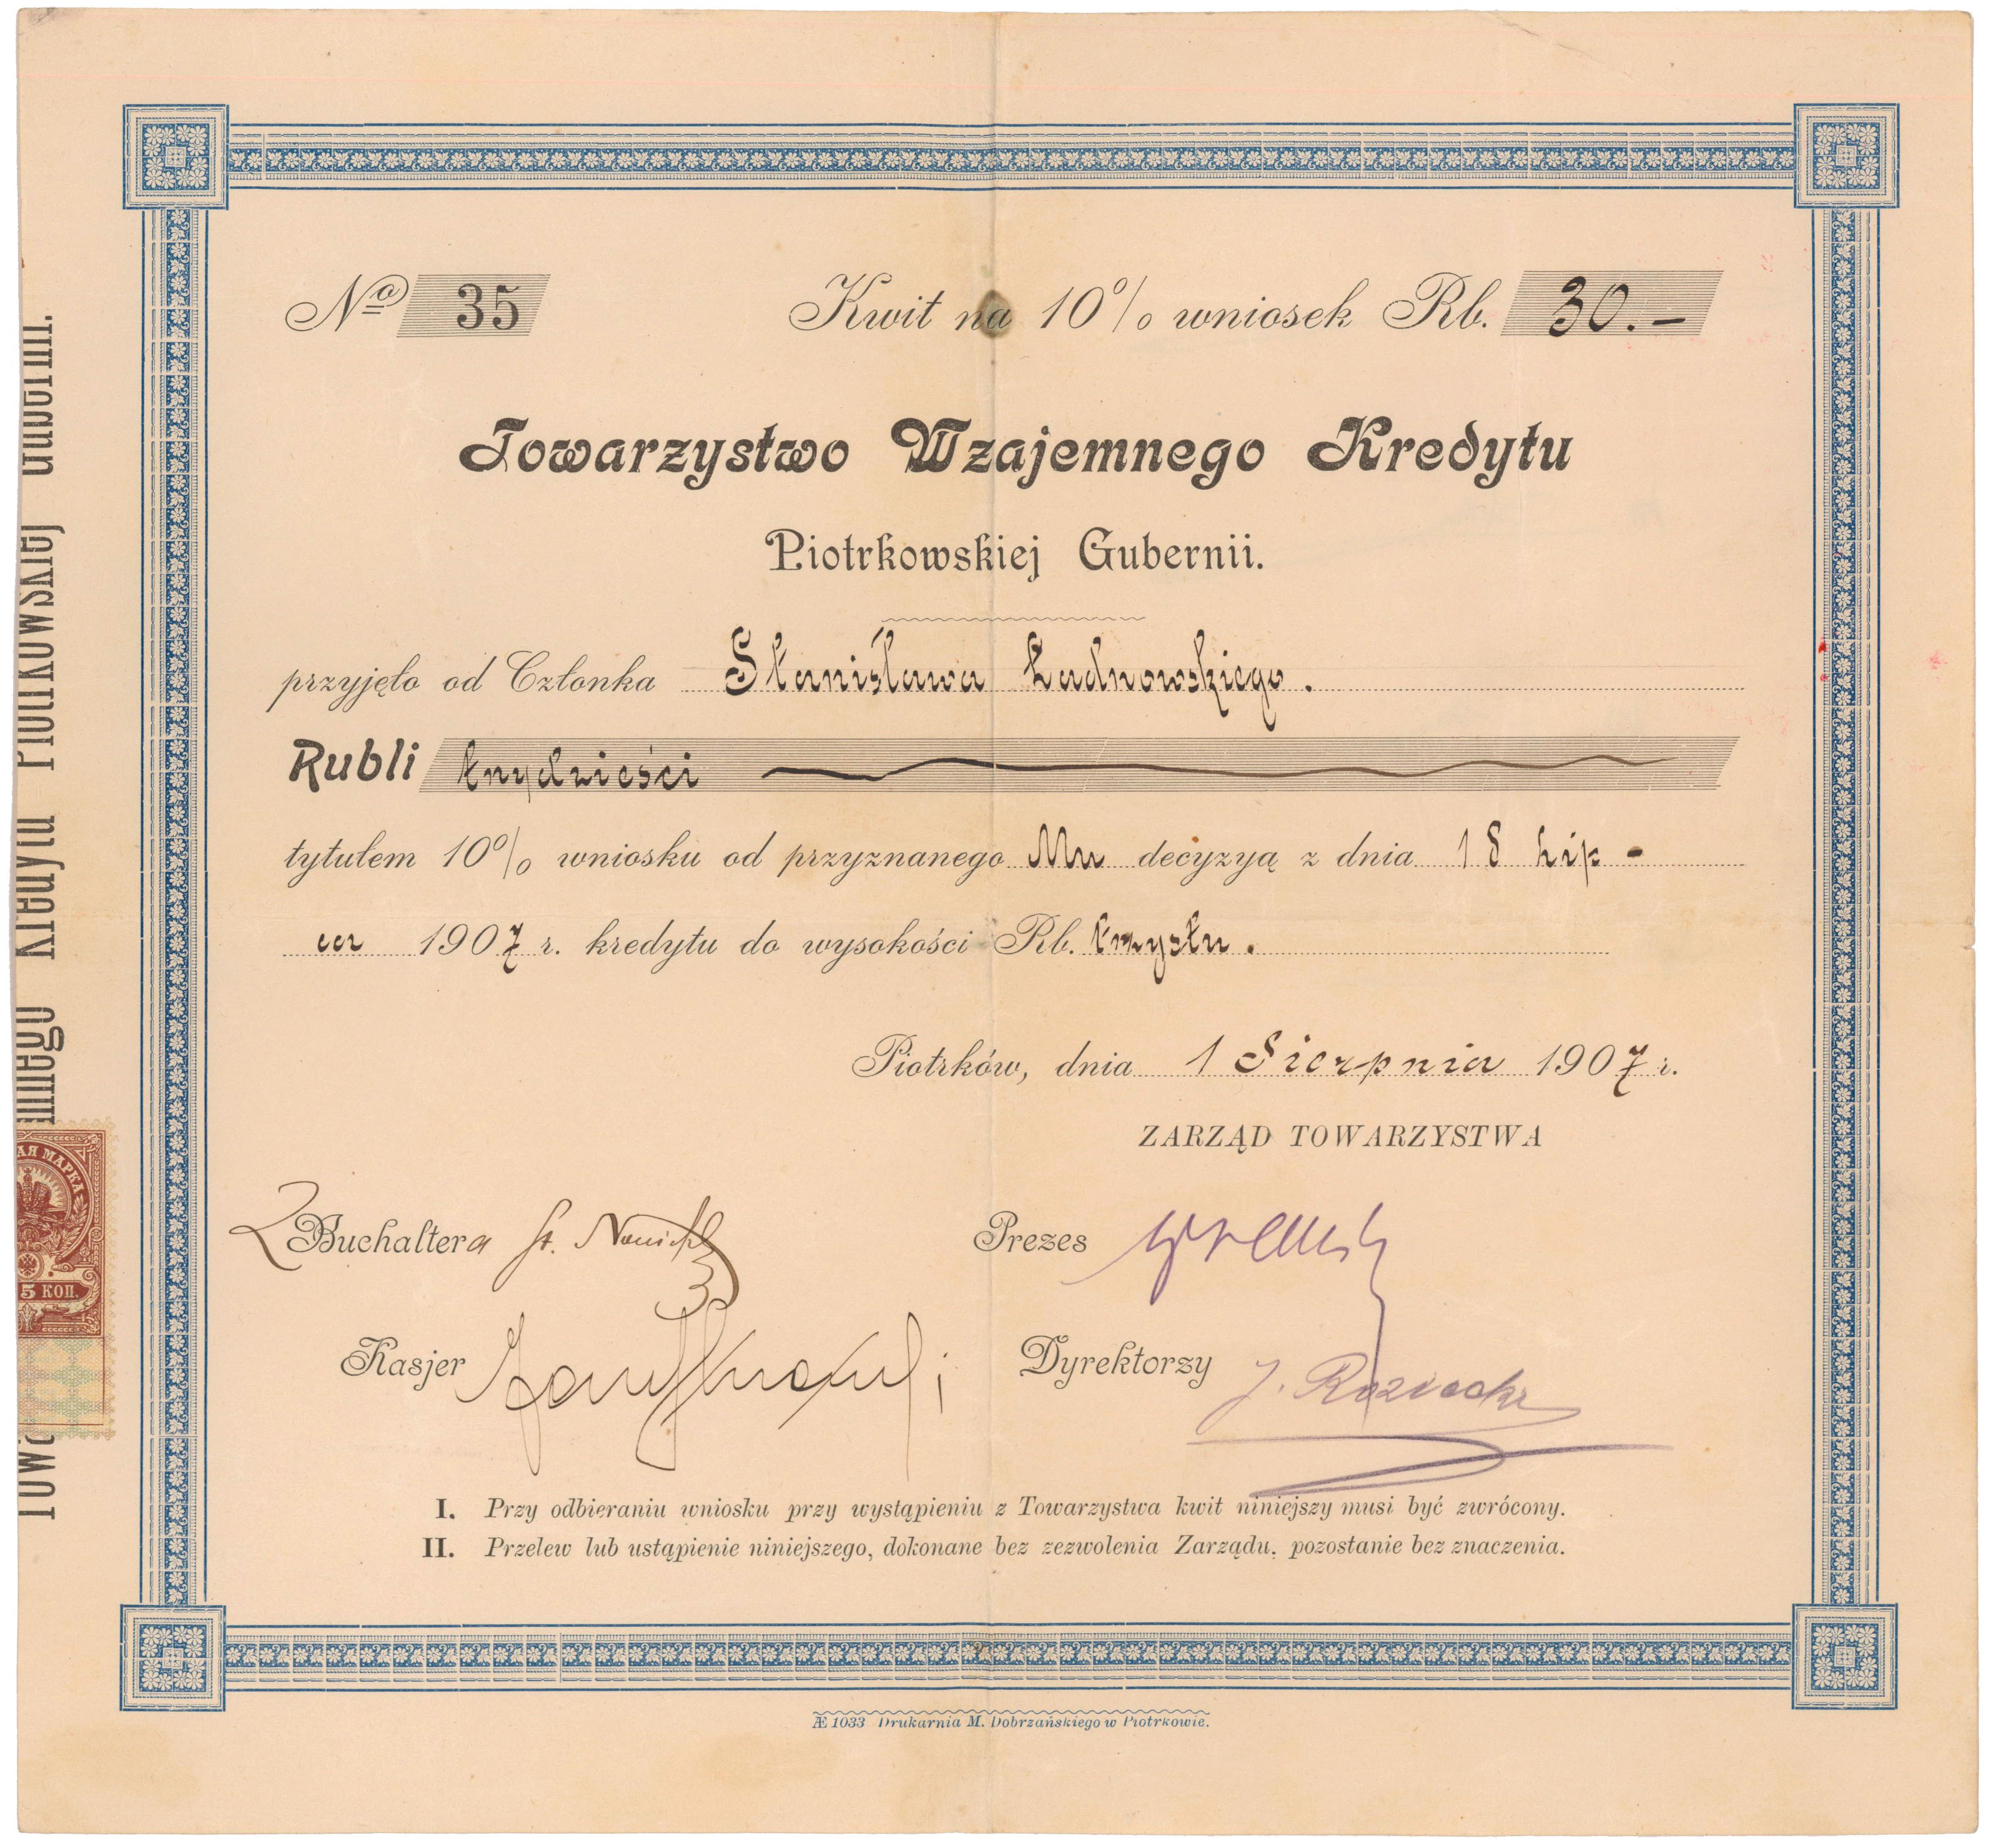 № 35 Kwit na 10% wniosek Rb. 30.—
Towarzystwo Wzajemnego Kredytu
Piotrkowskiej Gubernii.
przyjęło od Członka Stanisława Ładnowskiego.
Rubli trzydzieści
tytułem 10% wniosku od przyznanego Mu decyzyą z dnia 18 Lip-
ca 1907 r. kredytu do wysokości Rb. trzystu.
Piotrków, dnia 1 Sierpnia 1907 r.
ZARZĄD TOWARZYSTWA
Buchaltera St. Prezes
Kasjer Dyrektorzy J.
I. Przy odbieraniu wniosku przy wystąpieniu z Towarzystwa kwit niniejszy musi być zwrócony.
II. Przelew lub ustąpienie niniejszego, dokonane bez zezwolenia Zarządu, pozostanie bez znaczenia.
Æ 1033 Drukarnia M. Dobrzańskiego w Piotrkowie.
Kredytu Piotrkowskiej Gubernii.
МАРКА
5 КОП.